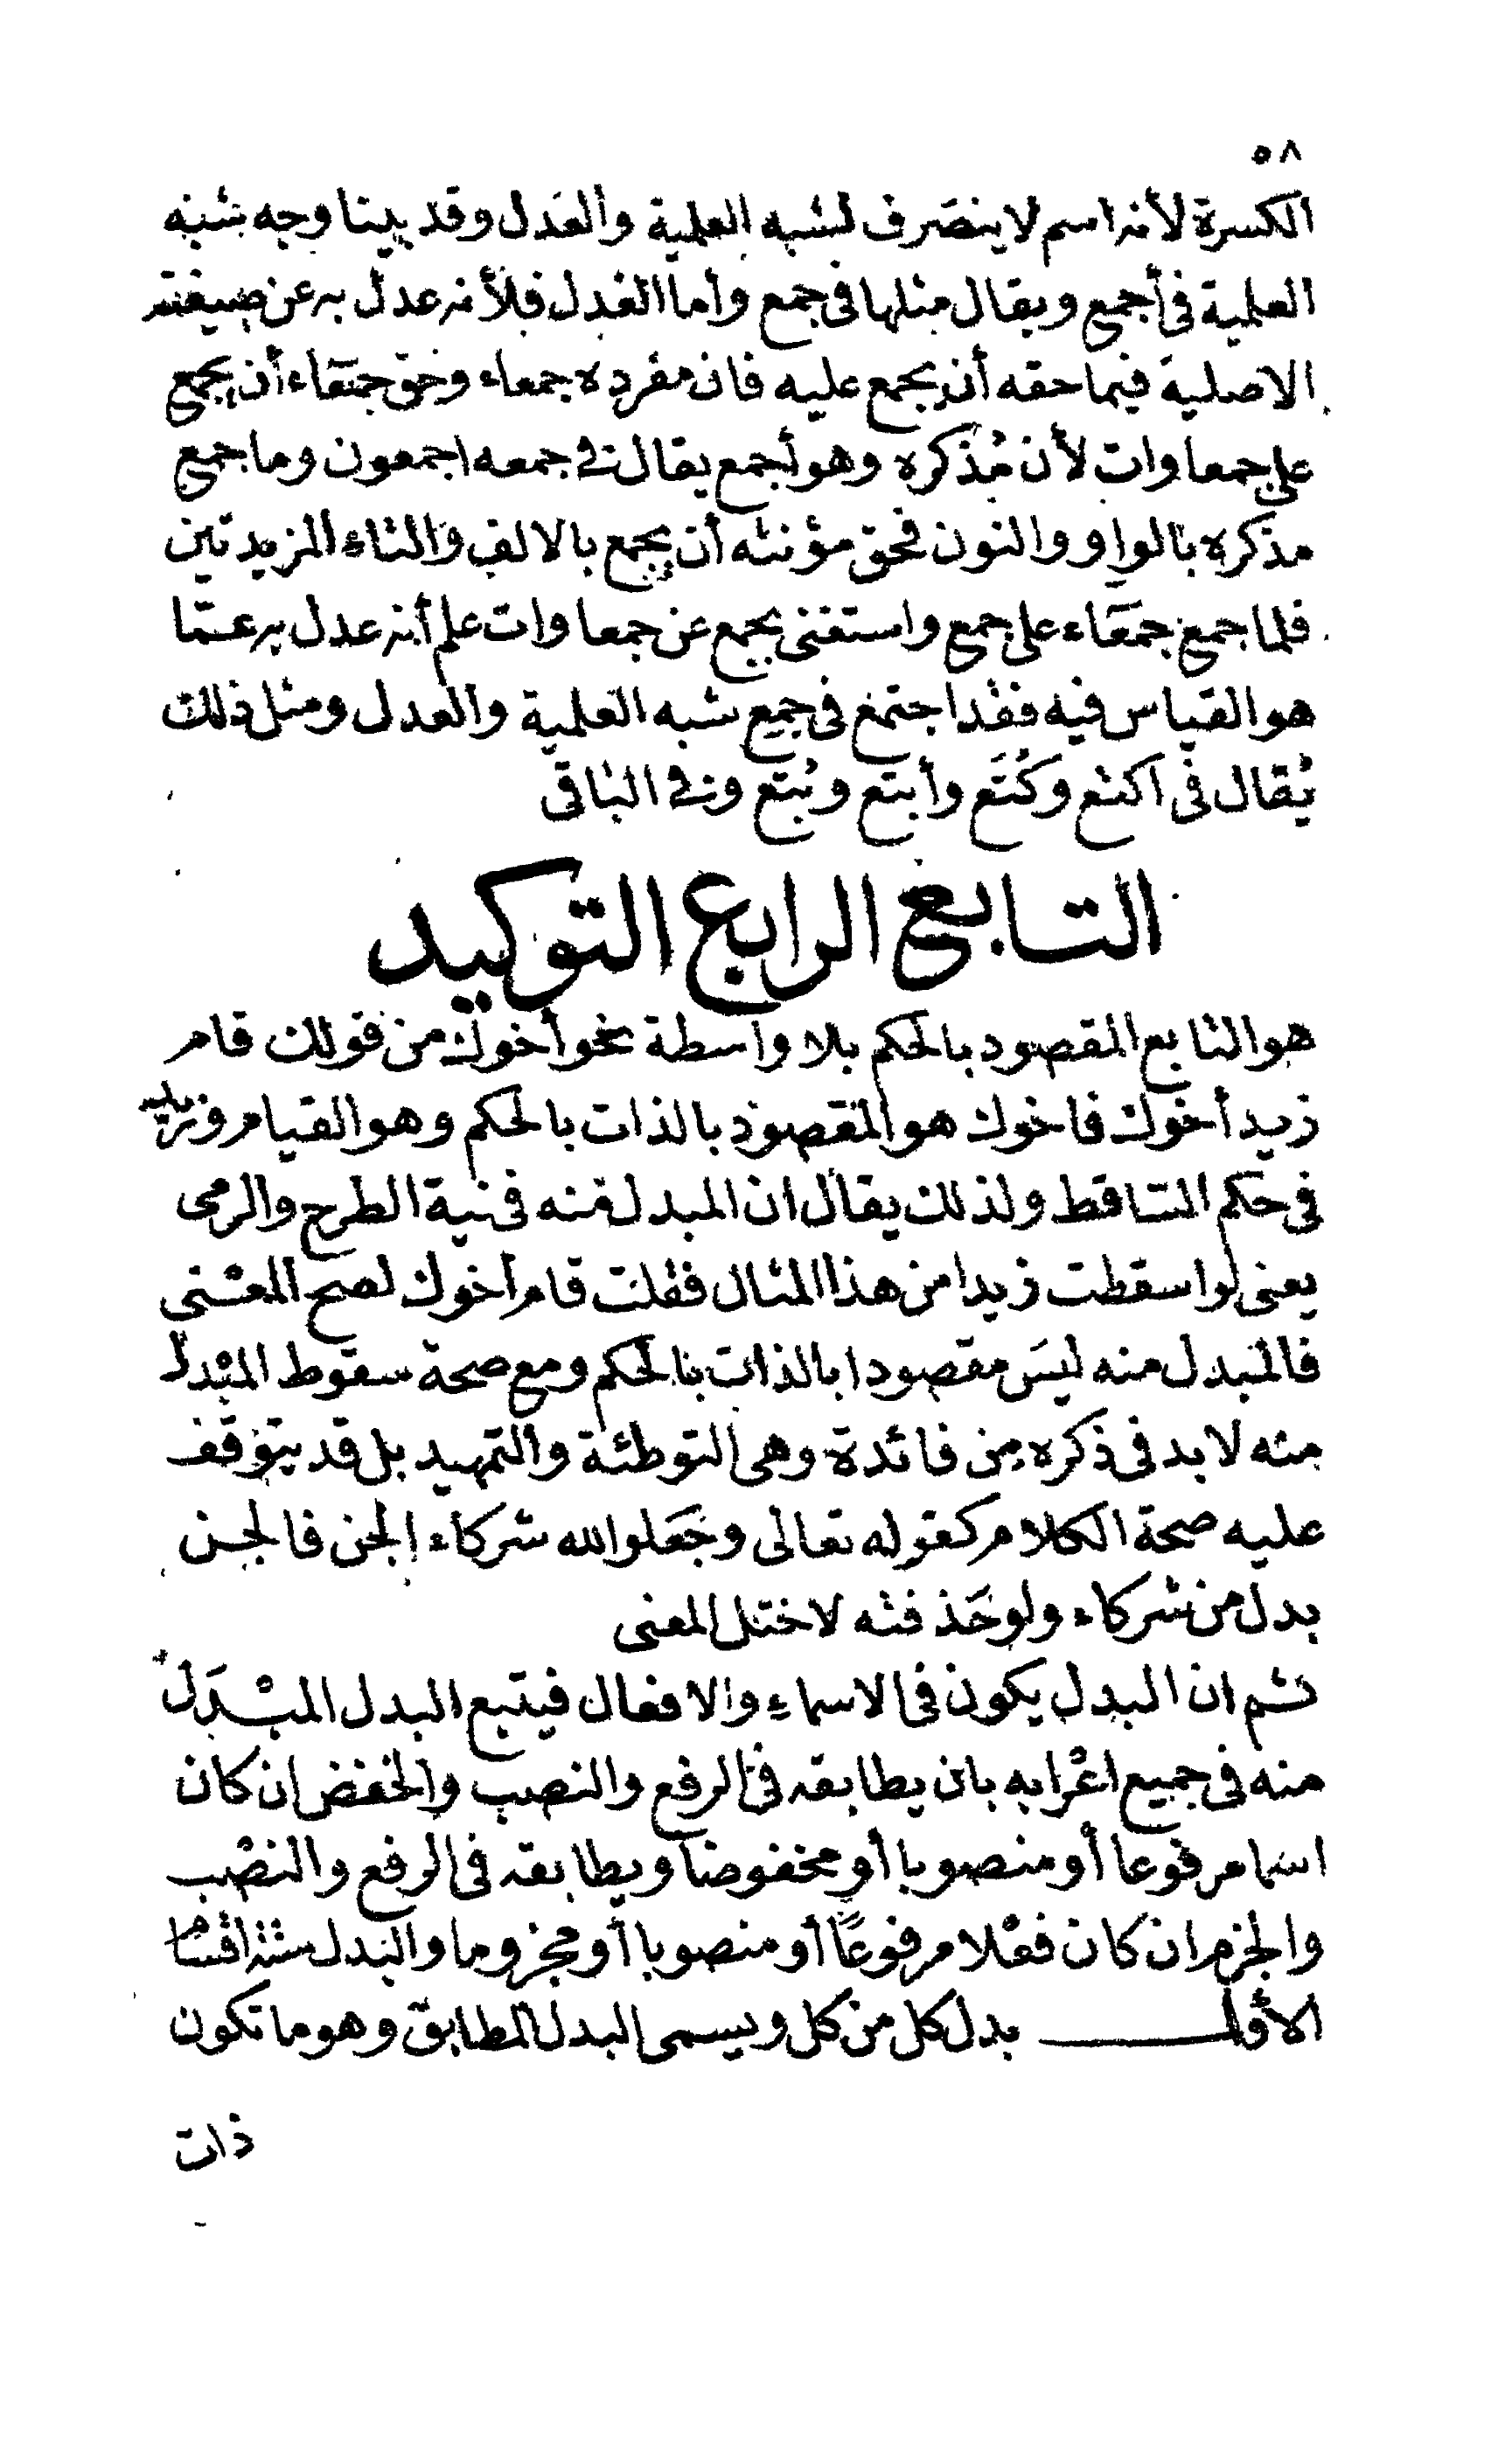 ٥٨
الكسرة لأنه اسم لا ينصرف لشبه العلمية والعدل وقد بينا وجه شبه
العلمية في أجمع ويقال مثلها في جمع وأما العدل فلأنه عدل به عن صيغته
الاصلية فيما حقه أن يجمع عليه فان مفرده جمعاء وحق جمعاء أن يجمع
على جمعاوات لأن مذكره وهو أجمع يقال في جمعه اجمعون وما جمع
مذكره بالواو والنون فحق مؤنثه أن يجمع بالالف والتاء المزيدتين
فلما جمع جمعاء على جمع واستغنى بجمع عن جمعاوات علم أنه عدل به عما
هو القياس فيه فقد اجتمع في جمع شبه العلمية والعدل ومثل ذلك
يُقال في اكتع وكُتَع وأبتع وبُتع وفي الباقى
التابع الرابع التوكيد
هو التابع المقصود بالحكم بلا واسطة نحو أخوك من قولك قام
زيد أخوك فاخوك هو المقصود بالذات بالحكم وهو القيام وزيد
في حكم الساقط ولذلك يقال ان المبدل منه في نية الطرح والرمى
يعنى لو اسقطت زيدا من هذا المثال فقلت قام أخوك لصح المعنى
فالمبدل منه ليس مقصودا بالذات بالحكم ومع صحة سقوط المبدل
منه لا بد في ذكره من فائدة وهى التوطئة والتمهيد بل قد يتوقف
عليه صحة الكلام كقوله تعالى وجَعَلوا لله شركاء الجن فالجن
بدل من شركاء ولو حَذفته لاختل المعنى
ثم ان البدل يكون في الاسماء والافعال فيتبع البدل المبْدَل
منه في جميع اعْرابه بان يطابقه في الرفع والنصب والخفض ان كان
اسما مرفوعا أو منصوبا أو مخفوضا ويطابقه في الرفع والنصْب
والجزم ان كان فعْلا مرفوعًا أو منصوبا أو مجزوما والبدل ستة اقسام
الأول بدل كل من كل ويسمى البدل المطابق وهو ما تكون
ذات